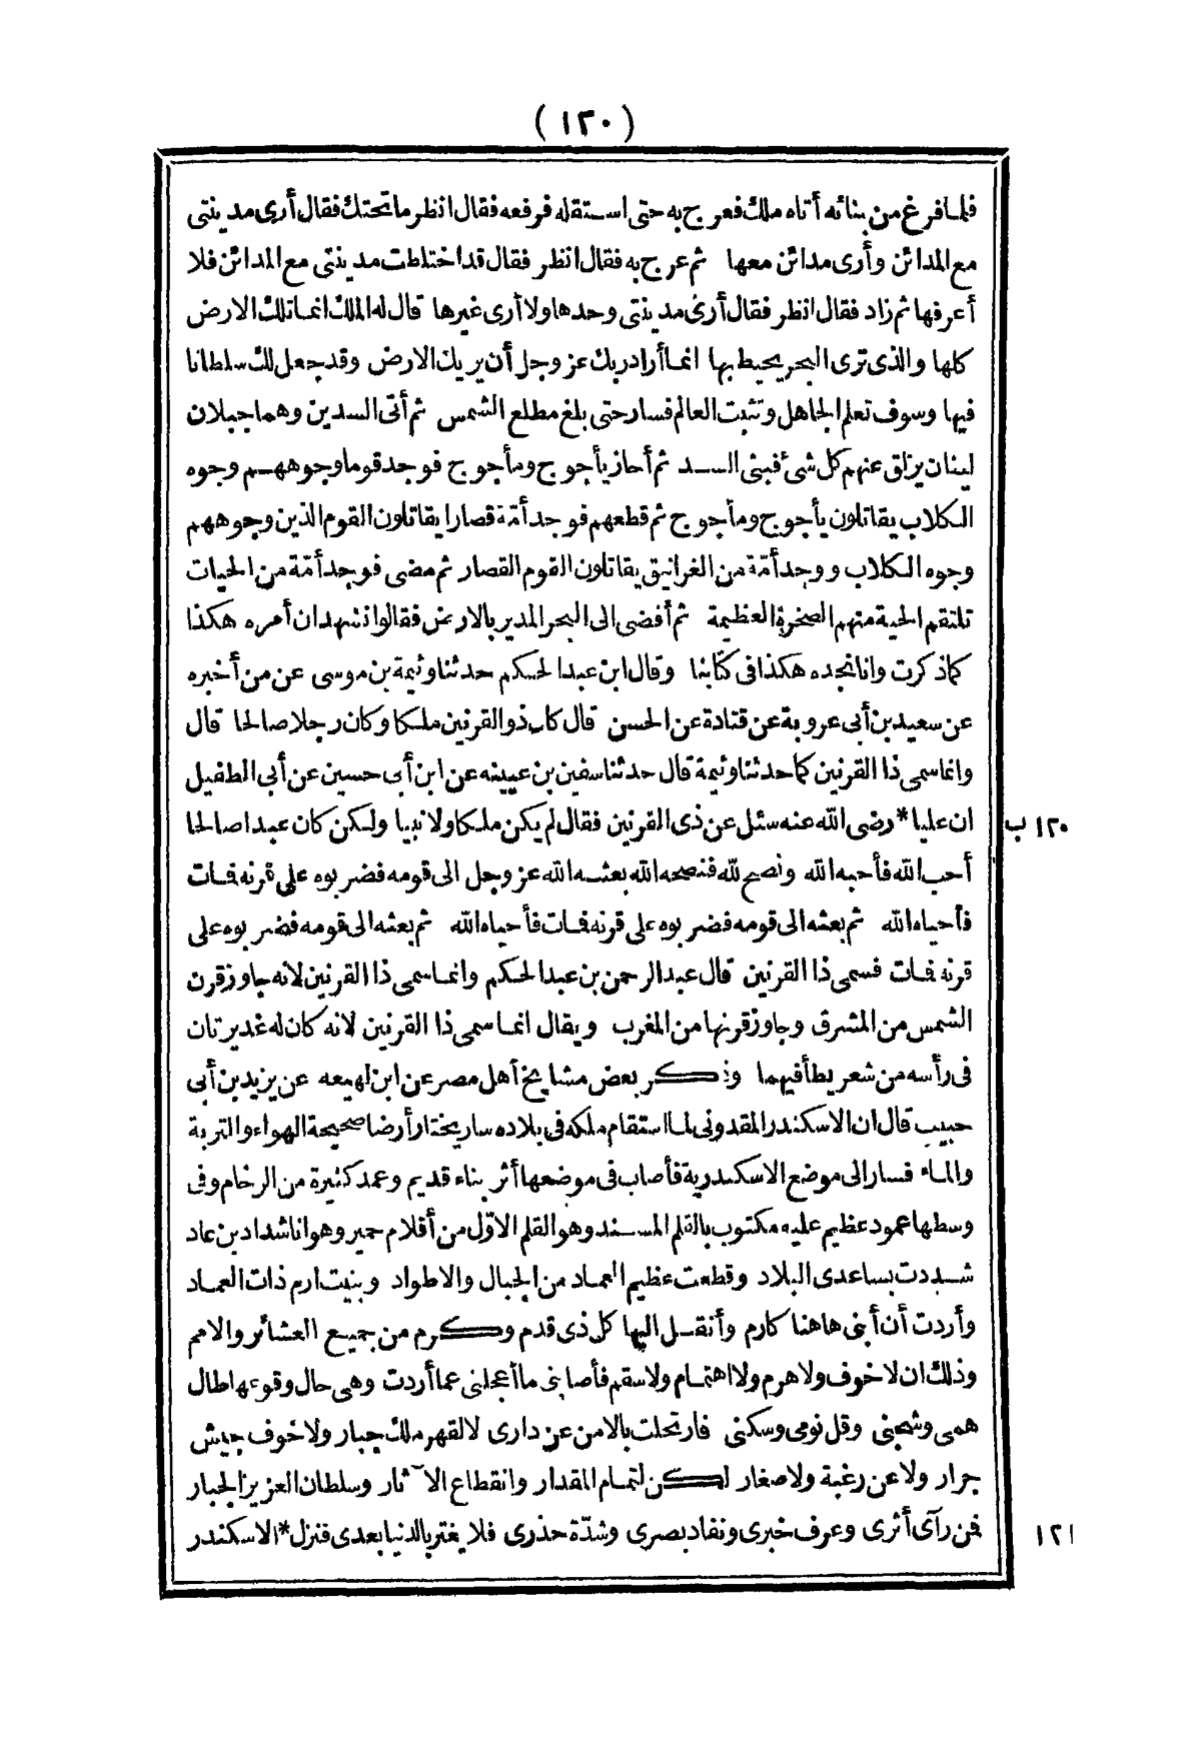 (١٢٠)
فلما فرغ من بنائه أتاه ملك فعرج به حتى استقله فرفعه فقال انظر ما تحتك فقال أرى مدينتى
مع المدائن وأرى مدائن معها ثم عرج به فقال انظر فقال قد اختلطت مدينتى مع المدائن فلا
أعرفها ثم زاد فقال انظر فقال أرى مدينتى وحدها ولا أرى غيرها قال له الملك انما تلك الارض
كلها والذى ترى البحر يحيط بها انما أراد ربك عز وجل أن يريك الارض وقد جعل لك سلطانا
فيها وسوف تعلم الجاهل وتثبت العالم فسار حتى بلغ مطلع الشمس ثم أتى السدين وهما جبلان
لينان يزلق عنهم كل شئ فبنى السد ثم أحاز يأجوج ومأجوج فوجد قوما وجوههم وجوه
الكلاب يقاتلون يأجوج ومأجوج ثم قطعهم فوجد أمّة قصارا يقاتلون القوم الذين وجوههم
وجوه الكلاب ووجد أمّة من الغرانيق يقاتلون القوم القصار ثم مضى فوجد أمّة من الحيات
تلتقم الحية منهم الصخرة العظيمة ثم أفضى الى البحر المدير بالارض فقالوا نشهد ان أمره هكذا
كما ذكرت وانا نجده هكذا فى كتابنا وقال ابن عبد الحكم حدثنا وثيمة بن موسى عن من أخبره
عن سعيد بن أبى عروبة عن قتادة عن الحسن قال كان ذو القرنين ملكا وكان رجلا صالحا قال
وانما سمى ذا القرنين كما حدثنا وثيمة قال حدثنا سفين بن عيينه عن ابن أبى حسين عن أبى الطفيل
ان عليا* رضى الله عنه سئل عن ذى القرنين فقال لم يكن ملكا ولا نبيا ولكن كان عبدا صالحا
١٢٠ ب
أحب الله فأحبه الله ونصح لله فنصحه الله بعثه الله عز وجل الى قومه فضربوه على قرنه فمات
فأحياه الله ثم بعثه الى قومه فضربوه على قرنه فمات فأحياه الله ثم بعثه الى قومه فضربوه على
قرنه فمات فسمى ذا القرنين قال عبد الرحمن بن عبد الحكم وانما سمى ذا القرنين لانه جاوز قرن
الشمس من المشرق وجاوز قرنها من المغرب ويقال انما سمى ذا القرنين لانه كان له غديرتان
فى رأسه من شعر يطأ فيهما وذكر بعض مشايخ أهل مصر عن ابن لهيعه عن يزيد بن أبى
حبيب قال ان الاسكندر المقدونى لما استقام ملكه فى بلاده سار يختار أرضا صحيحة الهواء والتربة
والماء فسار الى موضع الاسكندرية فأصاب فى موضعها أثر بناء قديم وعمد كثيرة من الرخام وفى
وسطها عمود عظيم عليه مكتوب بالقلم المسند وهو القلم الاوّل من أقلام حمير وهو انا شداد بن عاد
شددت بساعدى البلاد وقطعت عظيم العماد من الجبال والاطواد وبنيت ارم ذات العماد
وأردت أن أبنى هاهنا كارم وأنقل اليها كل ذى قدم وكرم من جميع العشائر والامم
وذلك ان لا خوف ولا هرم ولا اهتمام ولا سقم فأصابنى ما أعجلنى عما أردت وهى حال وقوعها طال
همى وشجنى وقل نومى وسكنى فارتحلت بالامن عن دارى لا لقهر ملك جبار ولا خوف جيش
جرار ولا عن رغبة ولا صغار لكن لتمام المقدار وانقطاع الآثار وسلطان العزيز الجبار
فمن رآى أثرى وعرف خبرى ونفاد بصرى وشدّة حذرى فلا يغتر بالدنيا بعدى فنزل* الاسكندر
١٢١